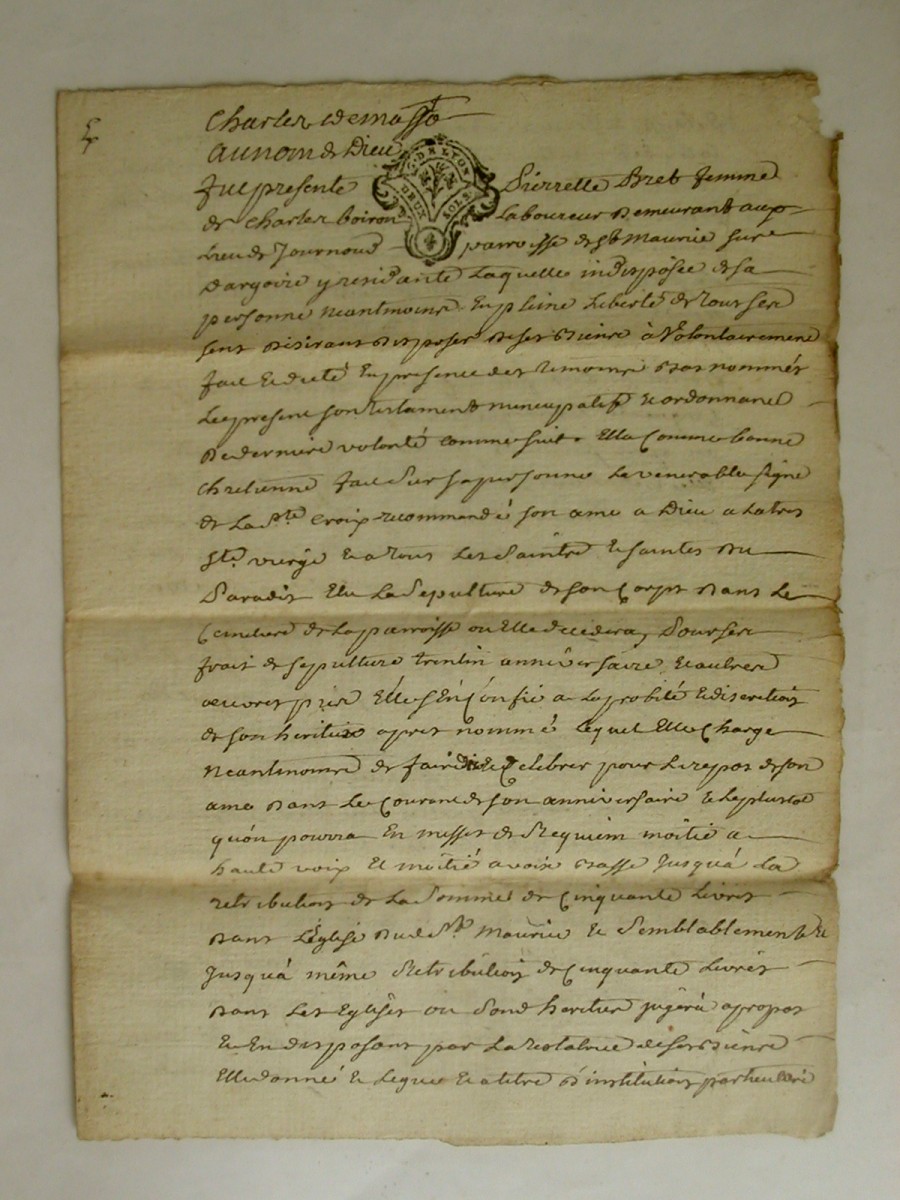 Charles demasso
Au nom de Dieu
G. DE LYON
DEUX SOLS
fut presente Pierrette Bret femme
de Charles boiron laboureur demeurant au
Lieu de Journoud parroisse de st Maurice sur
dargoire y residante Laquelle indisposée de sa
personne neantmoins En pleine Liberté de tous ses
sens desirant disposer de ses biens à volontairement
fait et dicté En presence des temoins bas nommés
Le present son testament nuncupatif et ordonnance
de derniere volonté comme suit. Elle Comme bonne
chretienne fait sur sa personne le venerable signe
de La ste Croix recommandé son ame a Dieu a la tres
ste vierge et a tous Les saints et saintes du
Paradis Elu La sepulture de son Corps dans Le
Cemitiere de la parroisse ou Elle decedera, Pour ses
frais de sepulture trentin anniversaire et autres
oeuvres pies Elle s'En Confie a La probité et discretion
de son heritier apres nommé lequel Elle Charge
neantmoins de faire dire et Celebrer pour Le repos de son
ame dans Le Courant de son anniversaire et le plustot
qu'on pourra En messes de Requiem moitié a
haute voix et moitié a voix basse Jusqu'à La
retribution de La somme de Cinquante Livres
dans L'Eglise dud. st Maurice et semblablement et
Jusqu'à même Retribution de Cinquante Livres
dans Les Eglises ou sond heritier jugera apropos
Et En disposant par La testatrice de ses biens
Elle donne et Legue et a titre d'institution particuliere